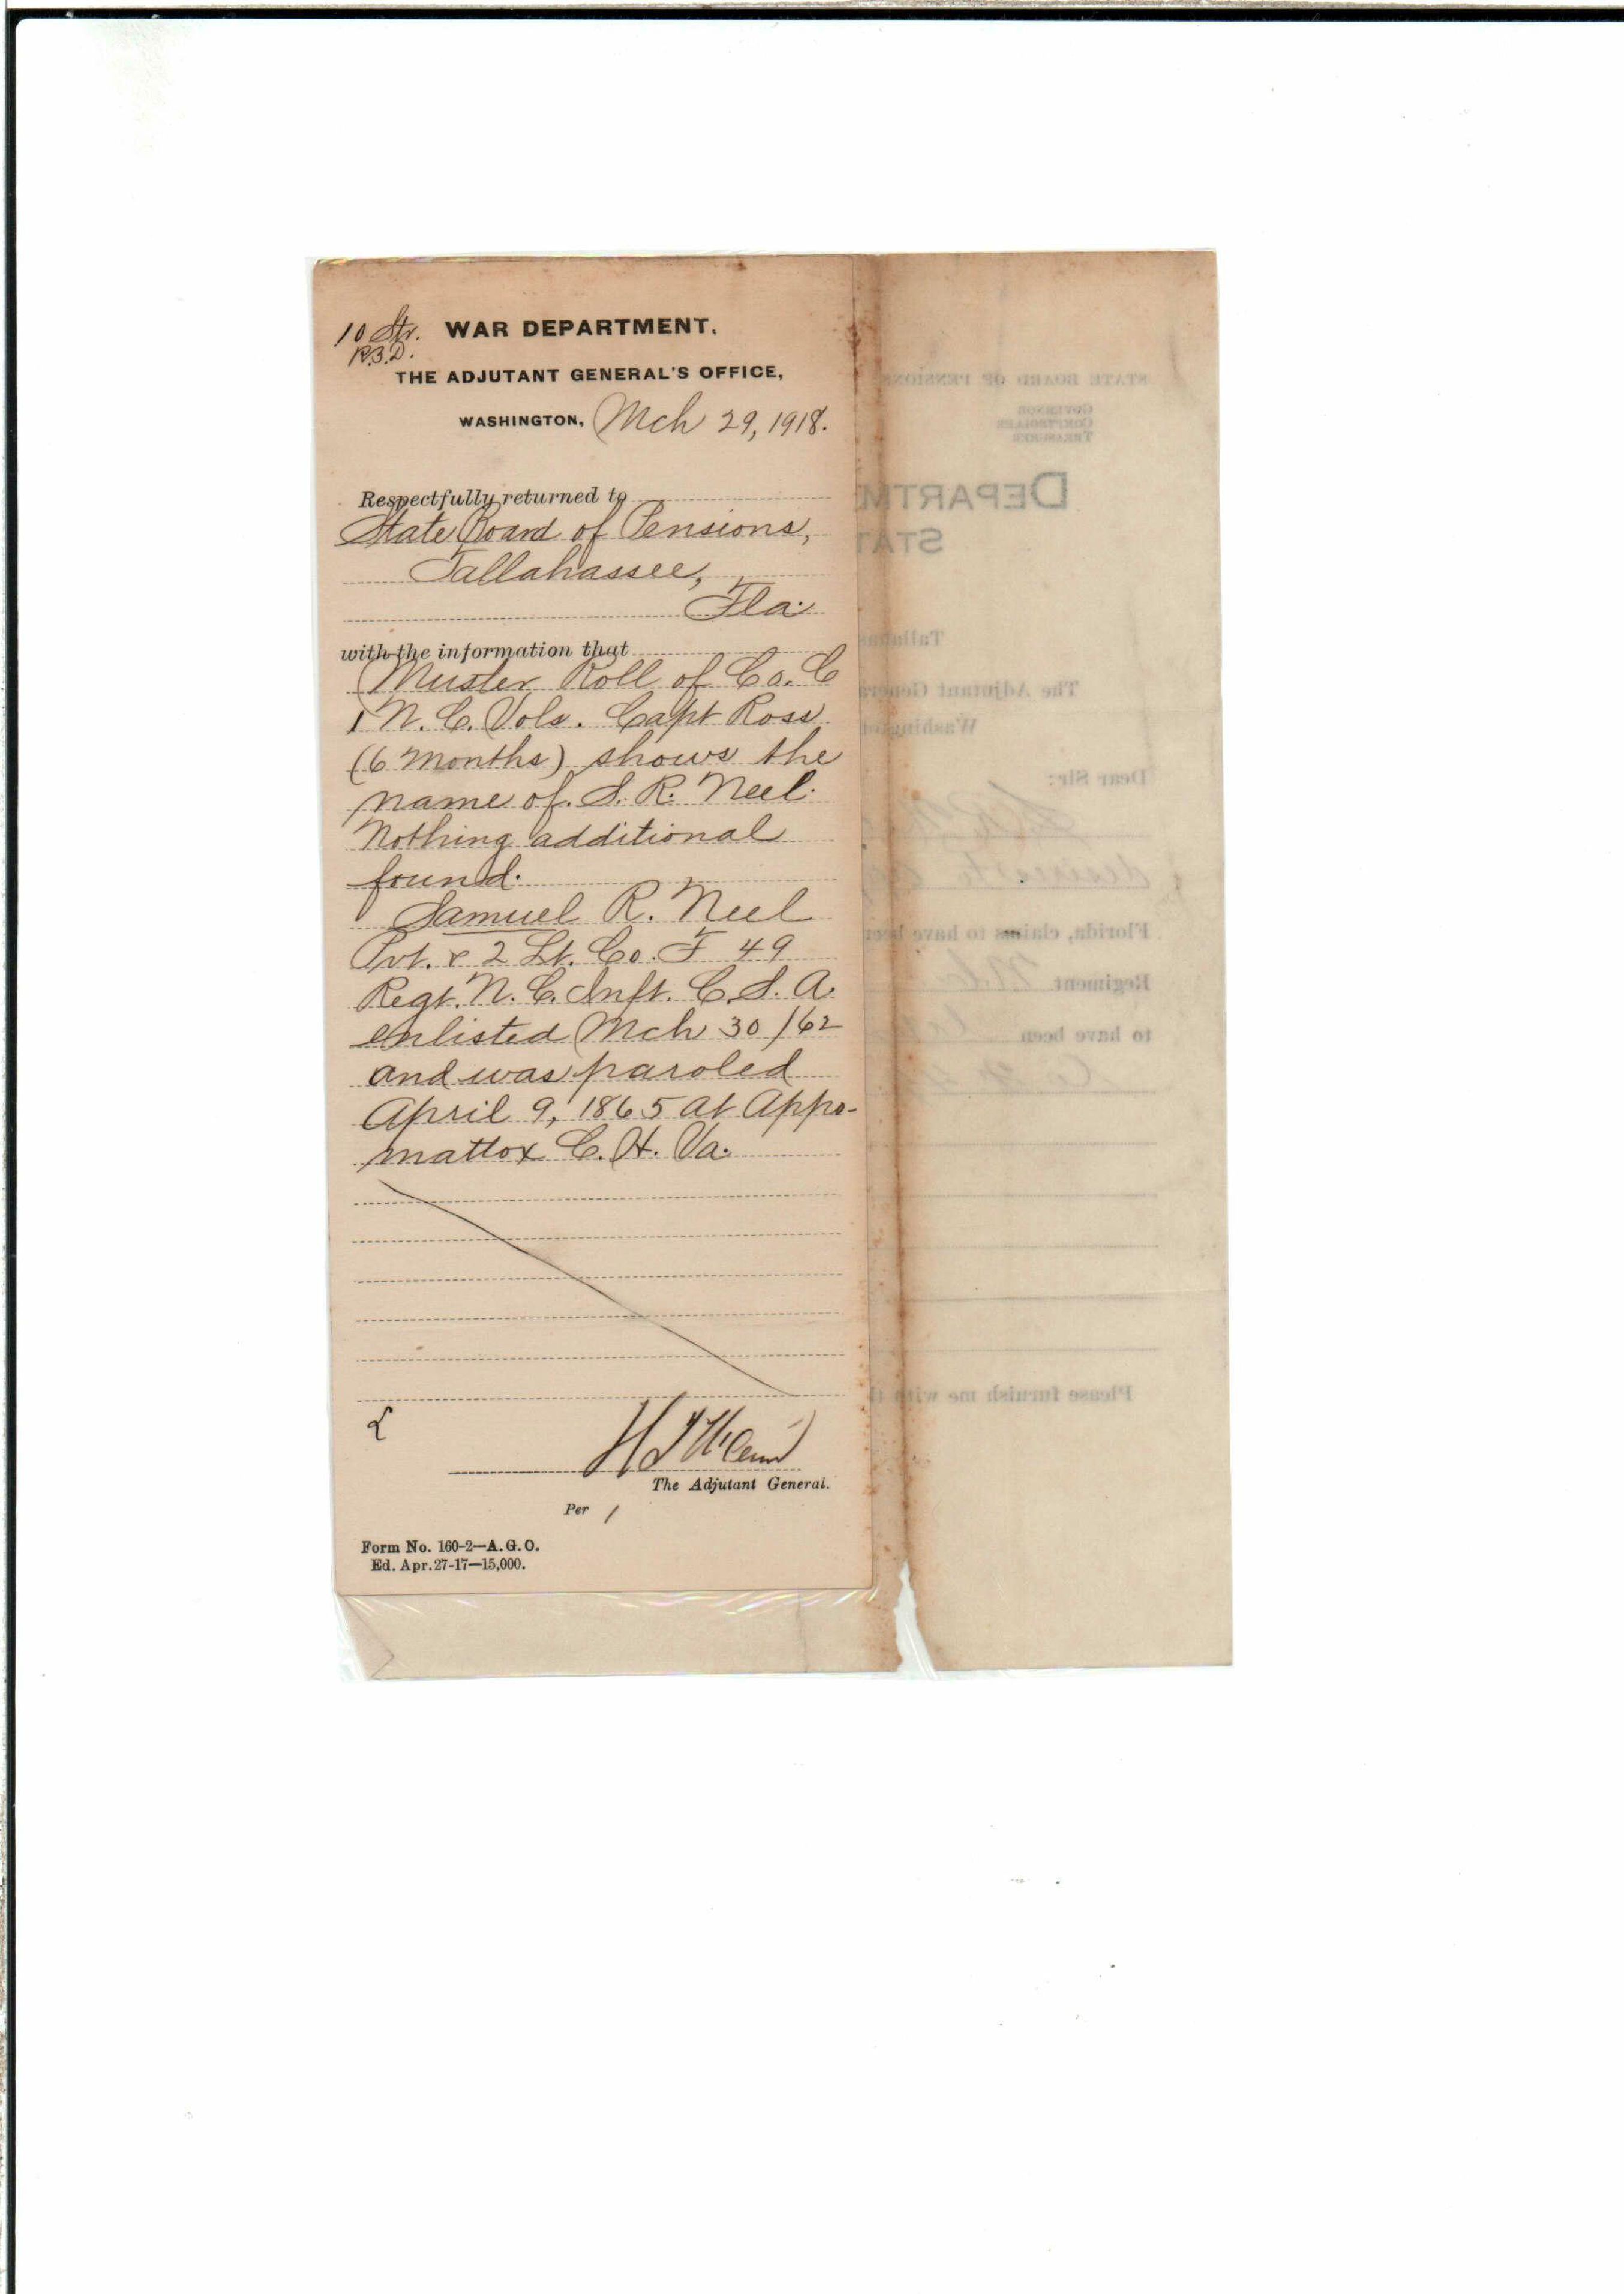 10 Str. WAR DEPARTMENT,
R.B.D.
THE ADJUTANT GENERAL'S OFFICE,
WASHINGTON, Mch 29, 1918.
Respectfully returned to
State Board of Pensions,
Tallahassee,
Fla.
with the information that
Muster Roll of Co. C
1 N. C. Vols. Capt Ross
(6 months) shows the
name of S. R. Neel.
Nothing additional
found.
Samuel R. Neel
Pvt. & 2 Lt. Co. F 49
Regt. N. C. Inft. C. S. A.
enlisted Mch 30/62
and was paroled
April 9, 1865 at Appo-
mattox C. H. Va.
The Adjutant General.
Per
Form No. 160-2—A.G.O.
Ed. Apr. 27-17—15,000.
STATE BOARD OF PENSIONS
GOVERNOR
COMPTROLLER
TREASURER
DEPARTM
STAT
Tallahas
The Adjutant Genera
Washington
Dear Sir:
Florida, claims to have been
Regiment
to have been
Please furnish me with th